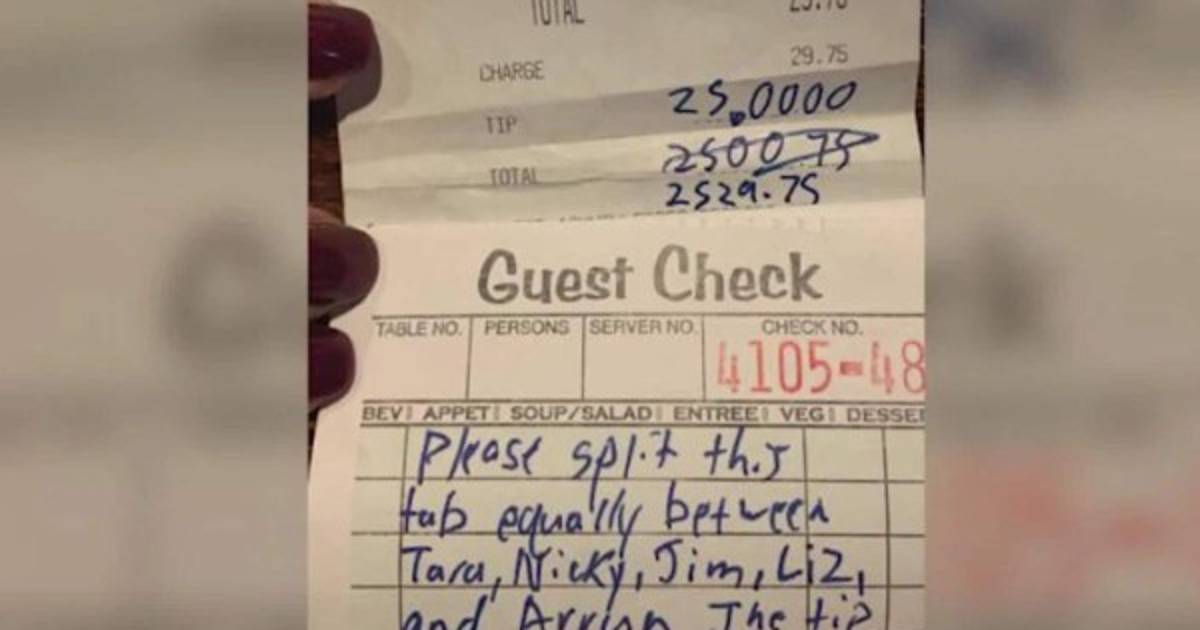 TOTAL
CHARGE 29.75
TIP 25.0000
TOTAL 2500.75
2529.75
Guest Check
TABLE NO. PERSONS SERVER NO. CHECK NO.
4105-48
BEV APPET SOUP/SALAD ENTREE VEG DESSE
Please split this
tab equally between
Tara, Nicky, Jim, Liz,
and The tip